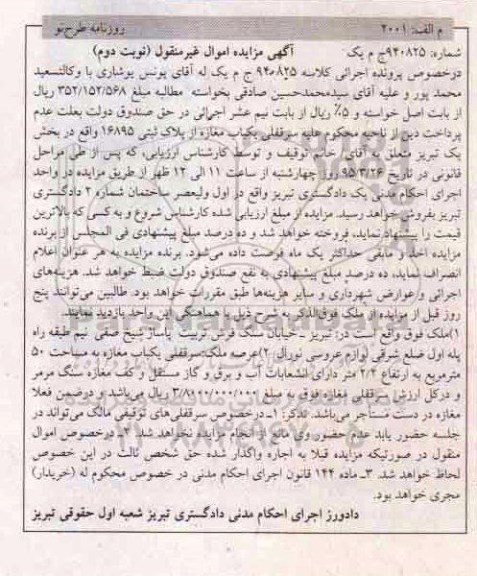 م الف: ۲۰۰۱ روزنامه طرح‌نو
شماره: ۹۴۰۸۲۵ج م یک آگهی مزایده اموال غیرمنقول (نوبت دوم)
درخصوص پرونده اجرائی کلاسه ۹۴۰۸۲۵ ج م یک له آقای یونس یوشاری با وکالتسعید
محمد پور و علیه آقای سیدمحمدحسین صادقی بخواسته مطالبه مبلغ ۳۵۲/۱۵۲/۵۶۸ ریال
از بابت اصل خواسته و ۵٪ ریال از بابت نیم عشر اجرائی در حق صندوق دولت بعلت عدم
پرداخت دین از ناحیه محکوم علیه سرقفلی یکباب مغازه از پلاک ثبتی ۱۶۸۹۵ واقع در بخش
یک تبریز متعلق به آقای/ خانم توقیف و توسط کارشناس ارزیابی، که پس از طی مراحل
قانونی در تاریخ ۹۵/۳/۲۶ روز چهارشنبه از ساعت ۱۱ الی ۱۲ ظهر از طریق مزایده در واحد
اجرای احکام مدنی یک دادگستری تبریز واقع در اول ولیعصر ساختمان شماره ۲ دادگستری
تبریز بفروش خواهد رسید. مزایده از مبلغ ارزیابی شده کارشناس شروع و به کسی که بالاترین
قیمت را پیشنهاد نماید، فروخته خواهد شد و ده درصد مبلغ پیشنهادی فی المجلس از برنده
مزایده اخذ و مابقی حداکثر یک ماه فرصت داده می‌شود. برنده مزایده به هر عنوان اعلام
انصراف نماید، ده درصد مبلغ پیشنهادی به نفع صندوق دولت ضبط خواهد شد. هزینه‌های
اجرائی و عوارض شهرداری و سایر هزینه‌ها طبق مقررات خواهد بود. طالبین می‌توانند پنج
روز قبل از مزایده از ملک فوق‌الذکر به شرح ذیل با هماهنگی این واحد بازدید نمایند.
۱)ملک فوق واقع است در: تبریز ـ خیابان سنگ فرش تربیت پاساژ شیخ صفی نیم طبقه راه
پله اول ضلع شرقی لوازم عروسی نورال ۲)عرصه ملک:سرقفلی یکباب مغازه به مساحت ۵۰
مترمربع به ارتفاع ۲/۲ متر دارای انشعابات آب و برق و گاز مستقل و کف مغازه سنگ مرمر
و درکل ارزش سرقفلی مغازه فوق به مبلغ ۳/۸۰۰/۰۰۰/۰۰۰ ریال می‌باشد و درضمن فعلا
مغازه در دست مستأجر می‌باشد. تذکر: ۱ـ درخصوص سرقفلی‌های توقیفی مالک می‌تواند در
جلسه حضور یابد عدم حضور وی مانع از انجام مزایده نخواهد شد. ۲ـ درخصوص اموال
منقول در صورتیکه مزایده قبلا به اجاره واگذار شده حق شخص ثالث در این خصوص
لحاظ خواهد شد. ۳ـ ماده ۱۴۴ قانون اجرای احکام مدنی در خصوص محکوم له (خریدار)
مجری خواهد بود.
دادورز اجرای احکام مدنی دادگستری تبریز شعبه اول حقوقی تبریز